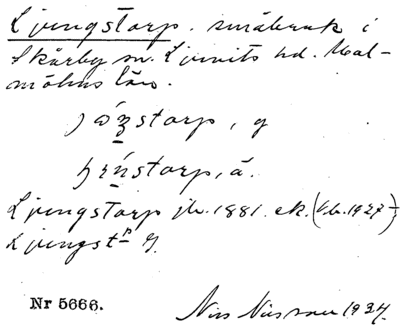 Ljungstorp. småbruk i
Skårby sn. Ljunits hd. Mal-
möhus län.
storp, y
storp, ä.
Ljungstorp jb. 1881. ek. (V.b. 1927-)
Ljungst. p
Nr 5666.
Nils Nilsson 1934.